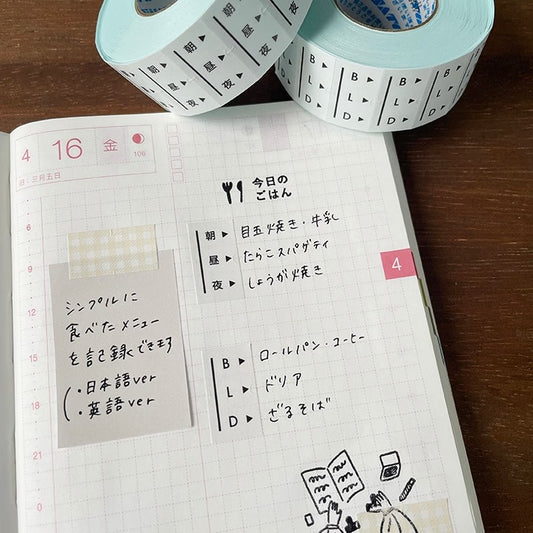 朝▶
昼▶
夜▶
B▶
L▶
D▶
4 16 金
106
旧:三月五日
今日の
ごはん
朝▶ 目玉焼き・牛乳
昼▶ たらこスパゲティ
夜▶ しょうが焼き
4
シンプルに
食べたメニュー
を記録できます
・日本語ver
・英語ver
B▶ ロールパン・コーヒー
L▶ ドリア
D▶ ざるそば
6
9
12
15
18
21
0